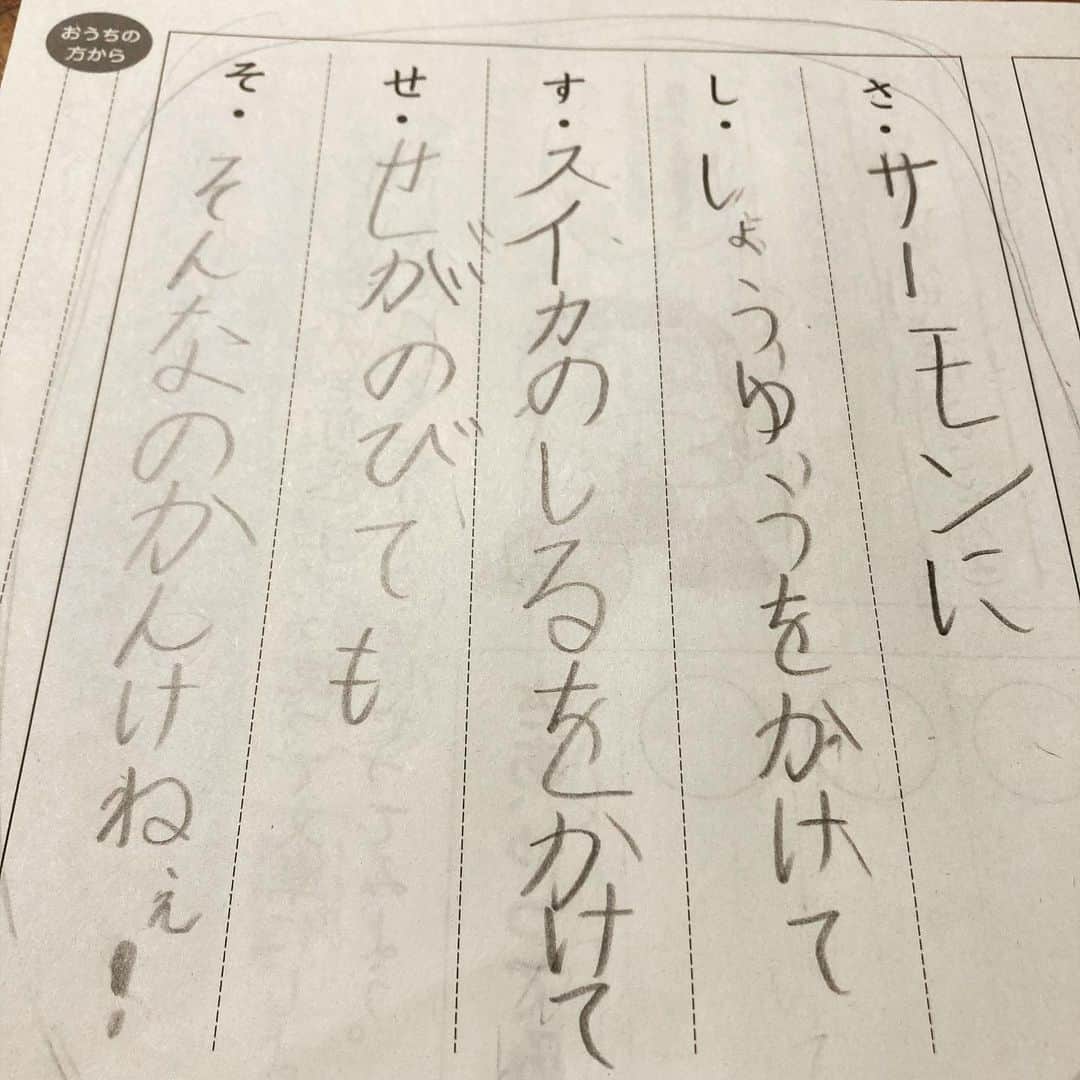 さ・サーモンに
し・しょうゆぅうをかけて
す・スイカのしるをかけて
せ・せがのびても
そ・そんなのかんけねぇ!
おうちの
方から